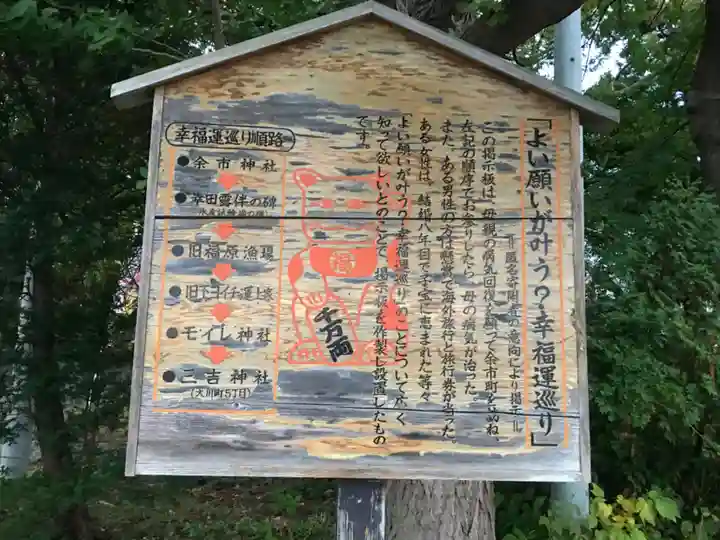 「よい願いが叶う?幸福運巡り」
＝匿名寄附者の意向により掲示＝
この掲示板は、母親の病気回復を願って余市町を訪ね、
左記の順序でお参りしたら、母の病気が治った。
また、ある男性の方は懸賞で海外旅行の旅行券が当った。
ある女性は、結婚八年目で子宝に恵まれた等々
「よい願いが叶う?幸福運巡り」のことについて広く
知って欲しいとのことで、掲示板を作製し設置したもの
です。
福
千万両
幸福運巡り順路
●余市神社
●幸田露伴の碑
(水産試験場の横)
●旧福原漁場
●旧下ヨイチ運上家
●モイレ神社
●三吉神社
(大川町5丁目)